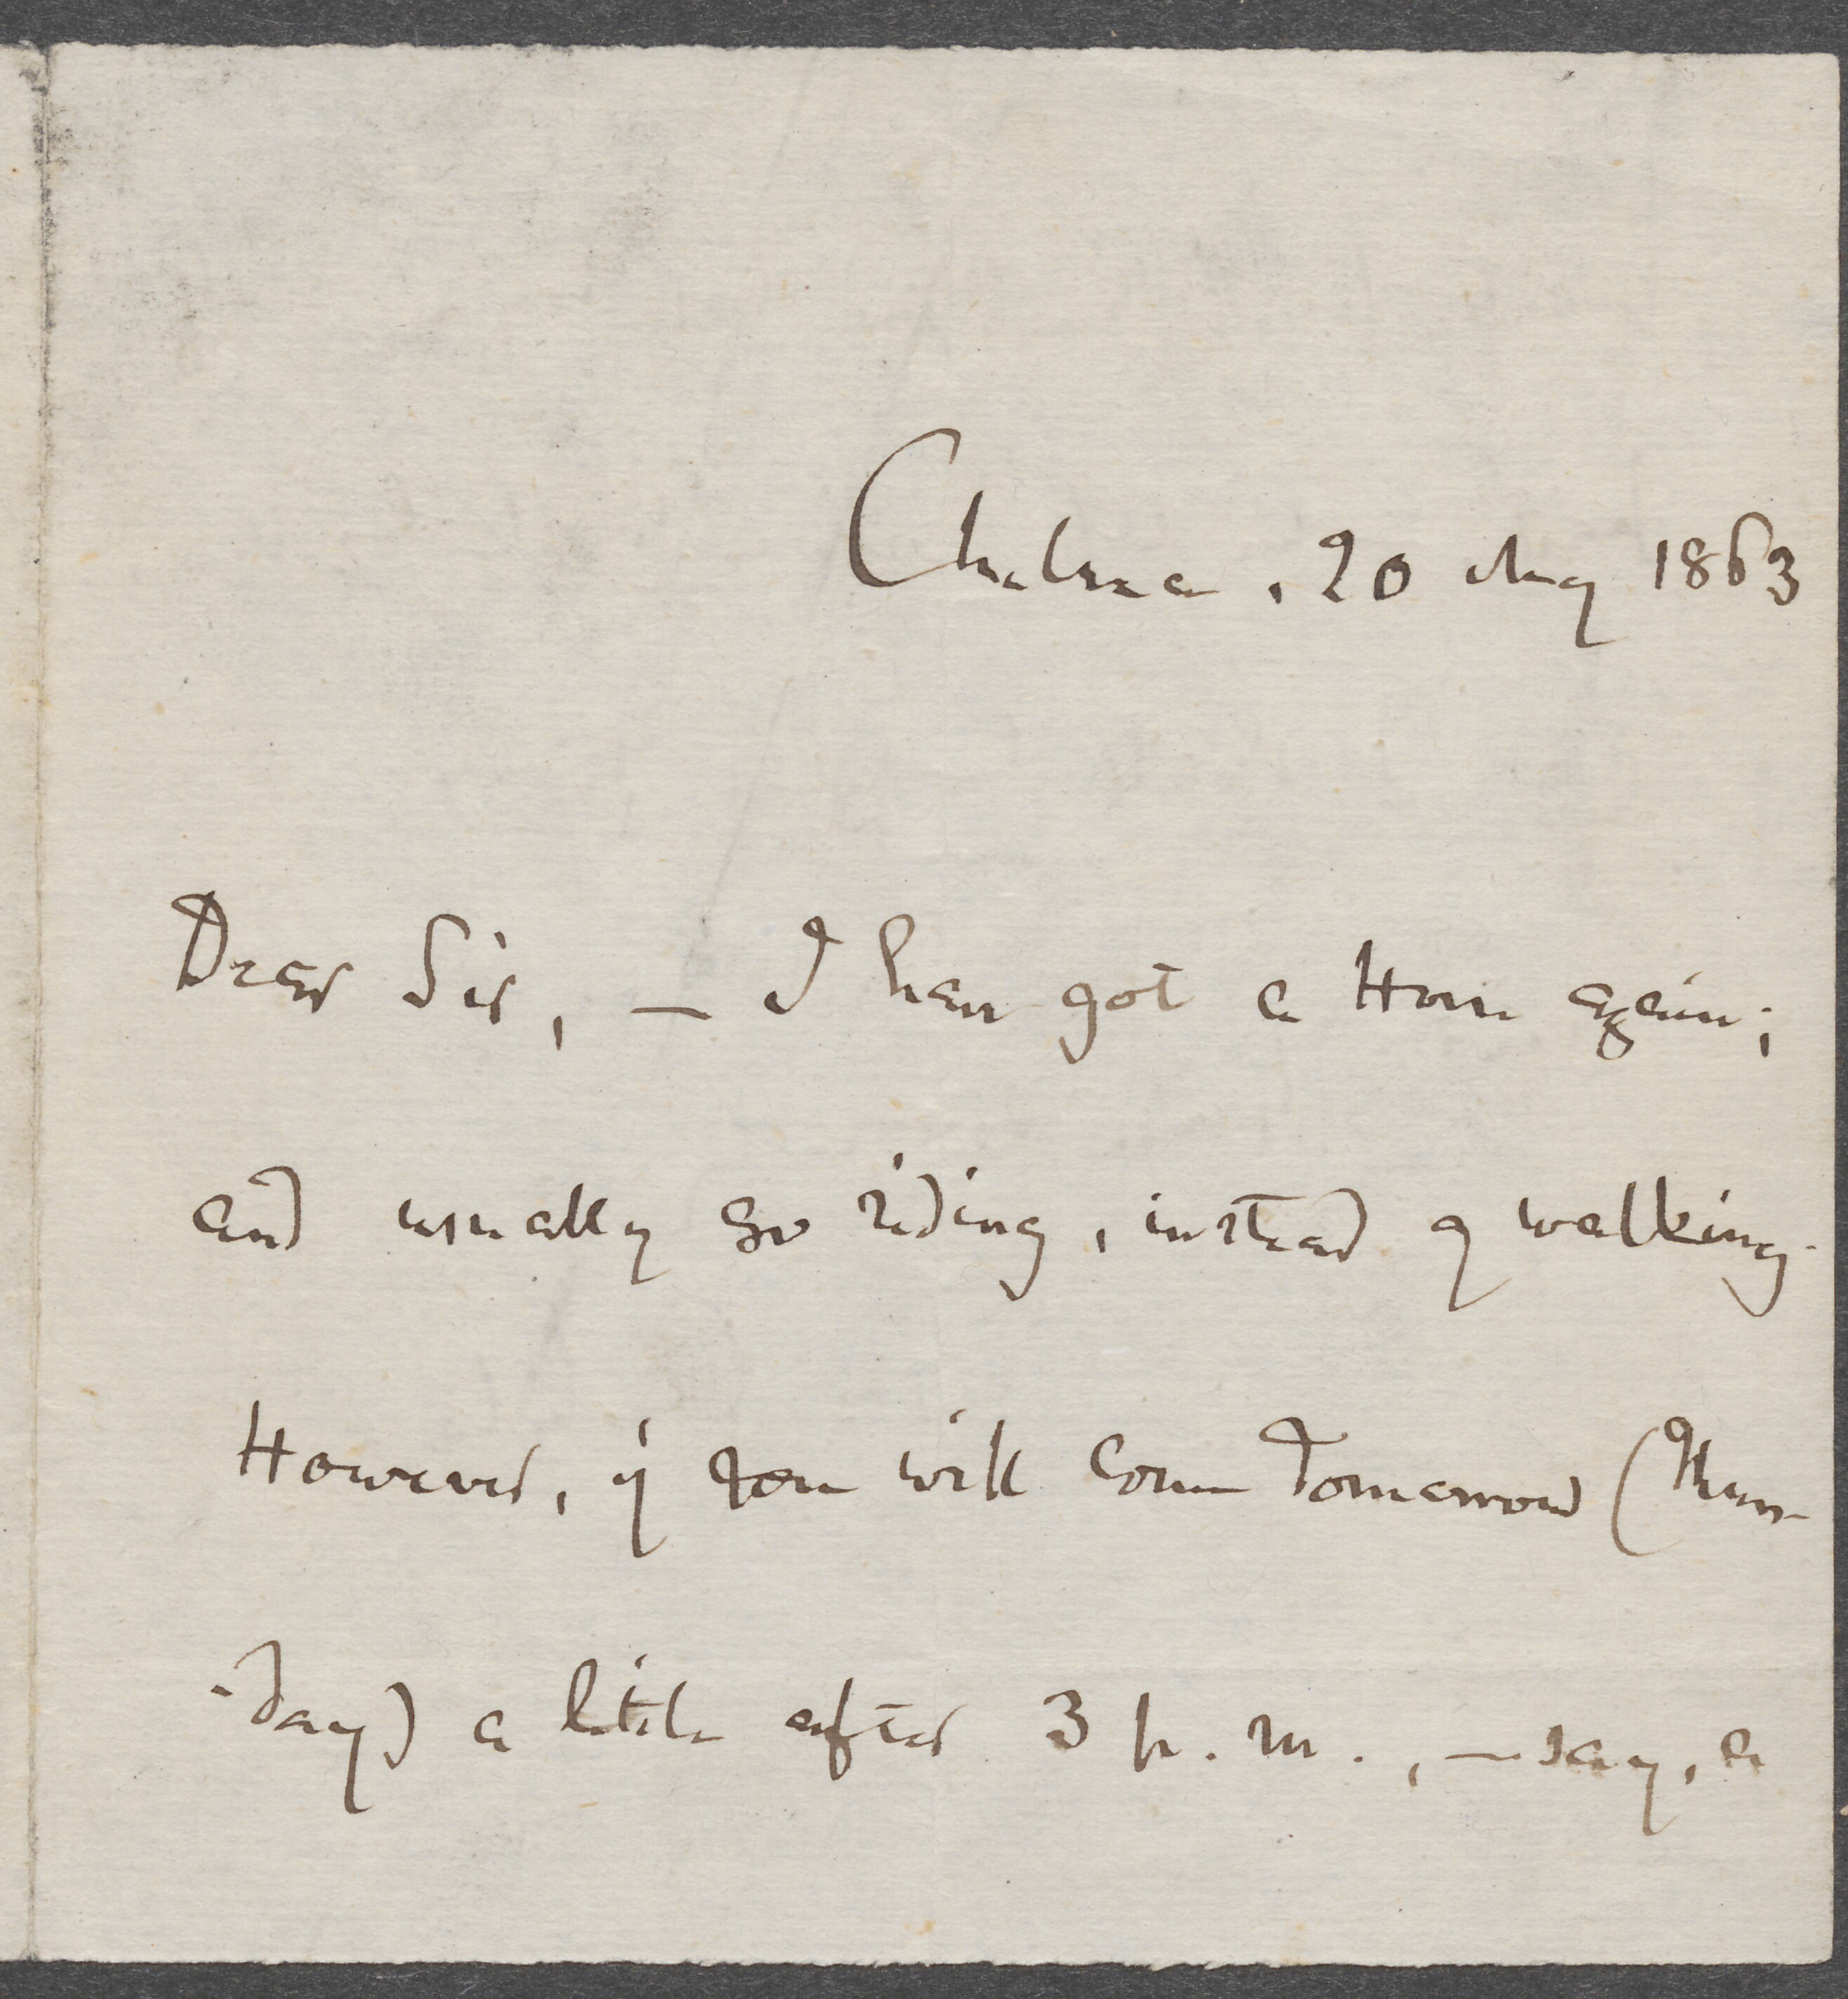 Chelsea, 20 May 1863
Dear Sir, — I have got a Horse again;
and usually go riding, instead of walking.
However, if you will come Tomorrow (Thurs-
-day) a little after 3 p.m., — say, a